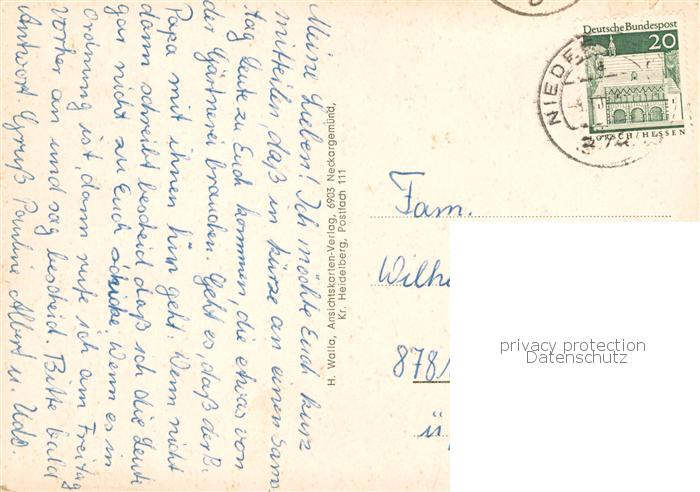 Meine Lieben! Ich möchte Euch kurz
mitteilen, daß in kürze an einen Sams-
tag Leute zu Euch kommen, die etwas von
der Gärtnerei brauchen. Geht es, daß der
Papa mit ihnen hin geht. Wenn nicht
dann schreibt bescheid daß ich die Leute
gar nicht zu Euch schicke. Wenn es in
Ordnung ist, dann rufe ich am Freitag
vorher an und sag bescheid. Bitte bald
Antwort. Gruß Pauline Albert u. Udo
H. Walla, Ansichtskarten-Verlag, 6903 Neckargemünd,
Kr. Heidelberg, Postfach 111
Deutsche Bundespost
20
LORSCH/HESSEN
NIEDE
Fam.
Wilhe
878
ü
privacy protection
Datenschutz